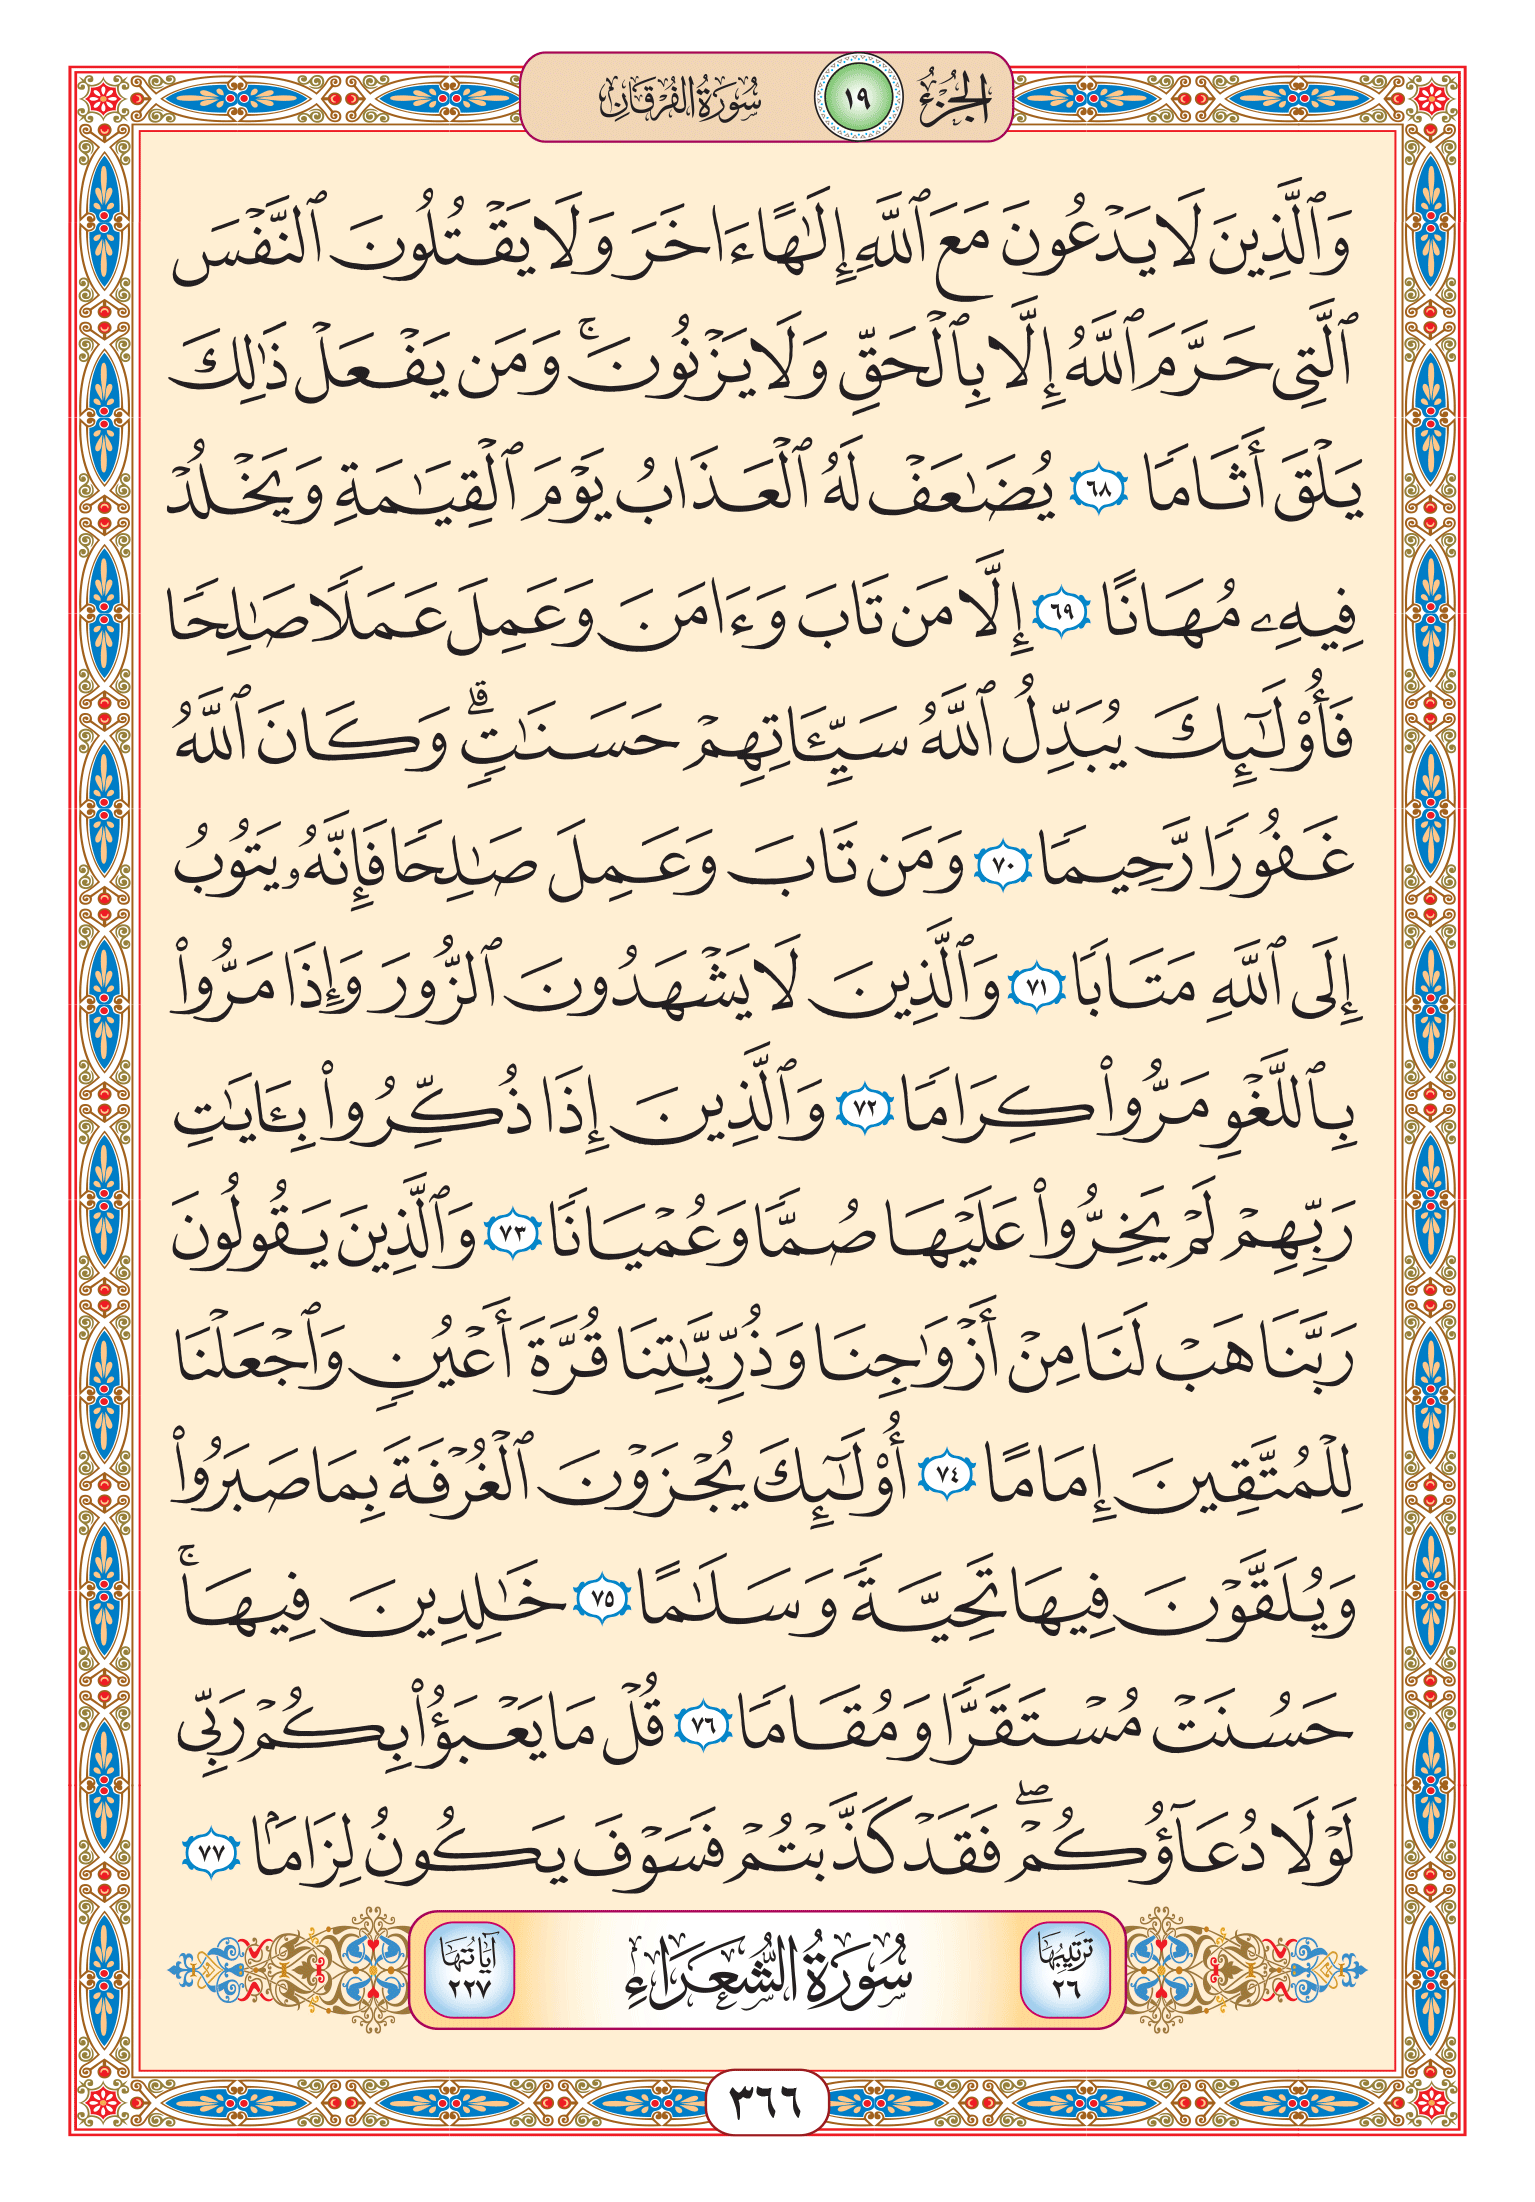 الجزء ١٩ سورة الفرقان
وَٱلَّذِينَ لَا يَدْعُونَ مَعَ ٱللَّهِ إِلَٰهًا ءَاخَرَ وَلَا يَقْتُلُونَ ٱلنَّفْسَ
ٱلَّتِى حَرَّمَ ٱللَّهُ إِلَّا بِٱلْحَقِّ وَلَا يَزْنُونَ ۚ وَمَن يَفْعَلْ ذَٰلِكَ
يَلْقَ أَثَامًا ٦٨ يُضَٰعَفْ لَهُ ٱلْعَذَابُ يَوْمَ ٱلْقِيَٰمَةِ وَيَخْلُدْ
فِيهِۦ مُهَانًا ٦٩ إِلَّا مَن تَابَ وَءَامَنَ وَعَمِلَ عَمَلًا صَٰلِحًا
فَأُو۟لَٰٓئِكَ يُبَدِّلُ ٱللَّهُ سَيِّـَٔاتِهِمْ حَسَنَٰتٍ ۗ وَكَانَ ٱللَّهُ
غَفُورًا رَّحِيمًا ٧٠ وَمَن تَابَ وَعَمِلَ صَٰلِحًا فَإِنَّهُۥ يَتُوبُ
إِلَى ٱللَّهِ مَتَابًا ٧١ وَٱلَّذِينَ لَا يَشْهَدُونَ ٱلزُّورَ وَإِذَا مَرُّوا۟
بِٱللَّغْوِ مَرُّوا۟ كِرَامًا ٧٢ وَٱلَّذِينَ إِذَا ذُكِّرُوا۟ بِـَٔايَٰتِ
رَبِّهِمْ لَمْ يَخِرُّوا۟ عَلَيْهَا صُمًّا وَعُمْيَانًا ٧٣ وَٱلَّذِينَ يَقُولُونَ
رَبَّنَا هَبْ لَنَا مِنْ أَزْوَٰجِنَا وَذُرِّيَّٰتِنَا قُرَّةَ أَعْيُنٍ وَٱجْعَلْنَا
لِلْمُتَّقِينَ إِمَامًا ٧٤ أُو۟لَٰٓئِكَ يُجْزَوْنَ ٱلْغُرْفَةَ بِمَا صَبَرُوا۟
وَيُلَقَّوْنَ فِيهَا تَحِيَّةً وَسَلَٰمًا ٧٥ خَٰلِدِينَ فِيهَا ۚ
حَسُنَتْ مُسْتَقَرًّا وَمُقَامًا ٧٦ قُلْ مَا يَعْبَؤُا۟ بِكُمْ رَبِّى
لَوْلَا دُعَآؤُكُمْ ۖ فَقَدْ كَذَّبْتُمْ فَسَوْفَ يَكُونُ لِزَامًۢا ٧٧
ترتيبها ٢٦ سُورَةُ الشُّعَرَاءِ آياتها ٢٢٧
٣٦٦